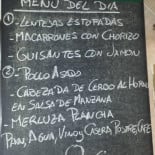 MENU DEL DIA
①-LENTEJAS ESTOFADAS
-MACARRONES CON CHORIZO
-GUISANTES CON JAMON
②-POLLO ASADO
-CABEZADA DE CERDO AL HORNO
EN SALSA DE MANZANA
-MERLUZA PLANCHA
PAN, AGUA, VINO Y CASERA POSTRE CAFE